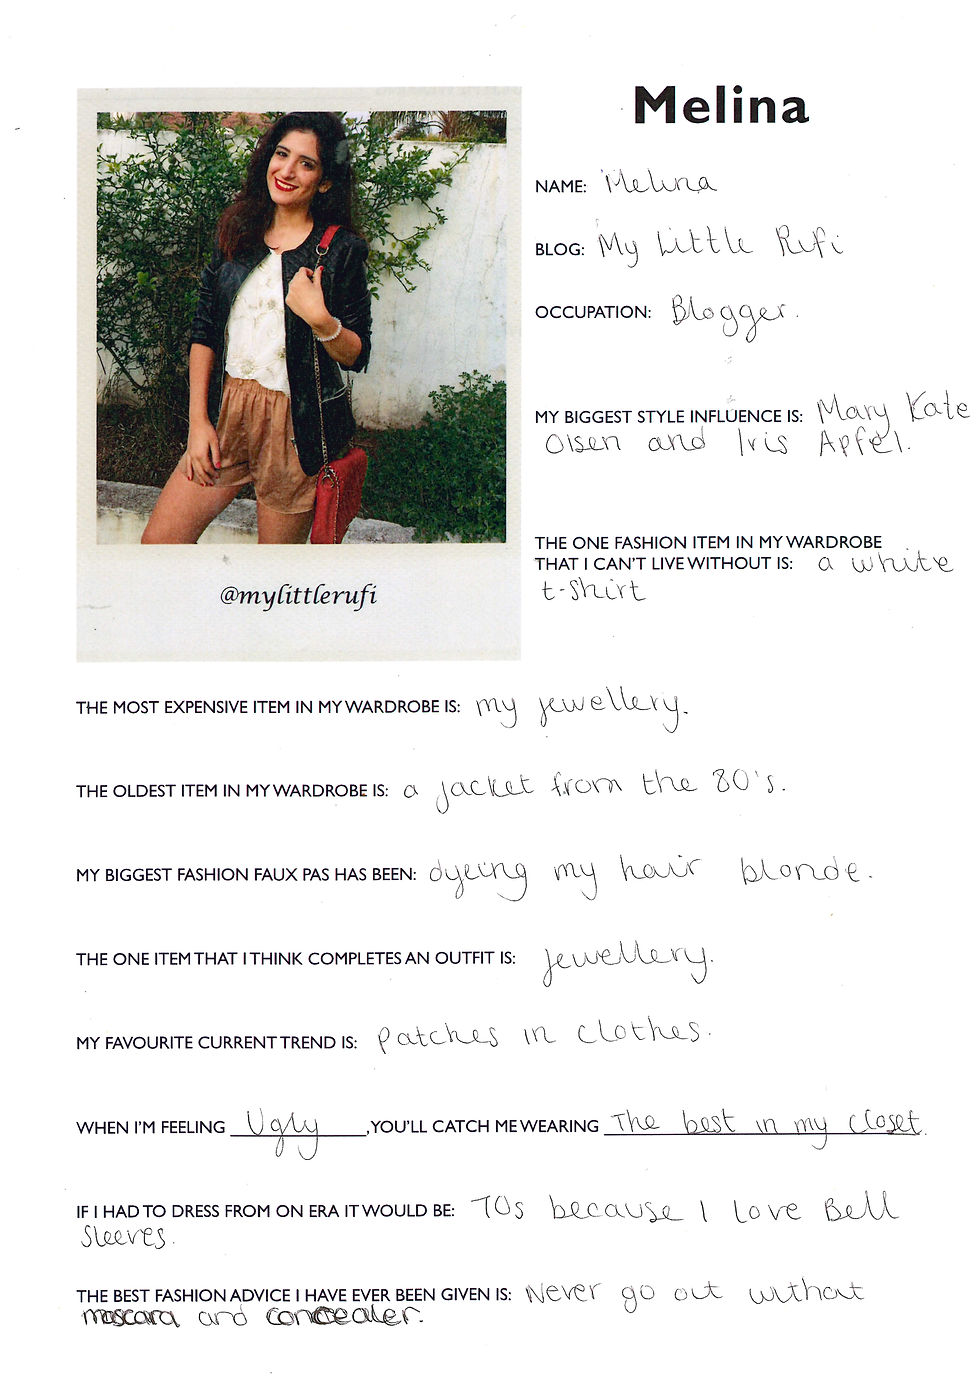 Melina
NAME: Melina
BLOG: My Little Rufi
OCCUPATION: Blogger.
MY BIGGEST STYLE INFLUENCE IS: Mary Kate
Olsen and Iris Apfel.
THE ONE FASHION ITEM IN MY WARDROBE
THAT I CAN'T LIVE WITHOUT IS: a white
t-shirt
@mylittlerufi
THE MOST EXPENSIVE ITEM IN MY WARDROBE IS: my jewellery.
THE OLDEST ITEM IN MY WARDROBE IS: a jacket from the 80's.
MY BIGGEST FASHION FAUX PAS HAS BEEN: dyeing my hair blonde.
THE ONE ITEM THAT I THINK COMPLETES AN OUTFIT IS: jewellery.
MY FAVOURITE CURRENT TREND IS: patches in clothes.
WHEN I'M FEELING Ugly, YOU'LL CATCH ME WEARING The best in my closet.
IF I HAD TO DRESS FROM ON ERA IT WOULD BE: 70s because I love Bell
Sleeves.
THE BEST FASHION ADVICE I HAVE EVER BEEN GIVEN IS: Never go out without
mascara and concealer.